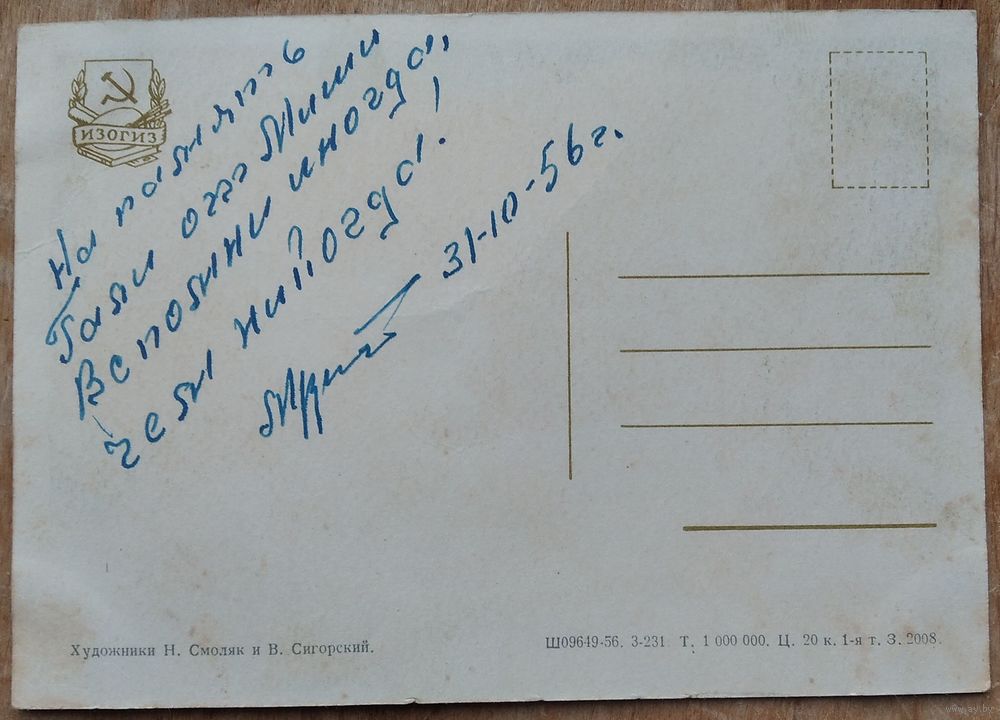 ИЗОГИЗ
На память
Гали от Миши
Вспомни иногда,
чем никогда!
31-10-56 г.
Художники Н. Смоляк и В. Сигорский.
Ш09649-56. 3-231. Т. 1 000 000. Ц. 20 к. 1-я т. З. 2008.
www.ay.by